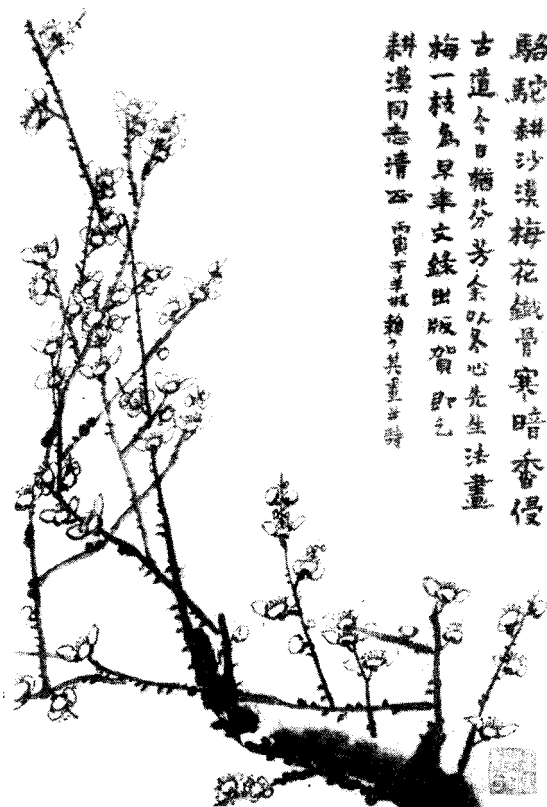 駱駝耕沙漠梅花鐵骨寒暗香侵
古道今日猶芬芳余以冬心先生法畫
梅一枝為旱年文錄出版賀即乞
耕漠同志清正 丙寅 賴少其畫並詩